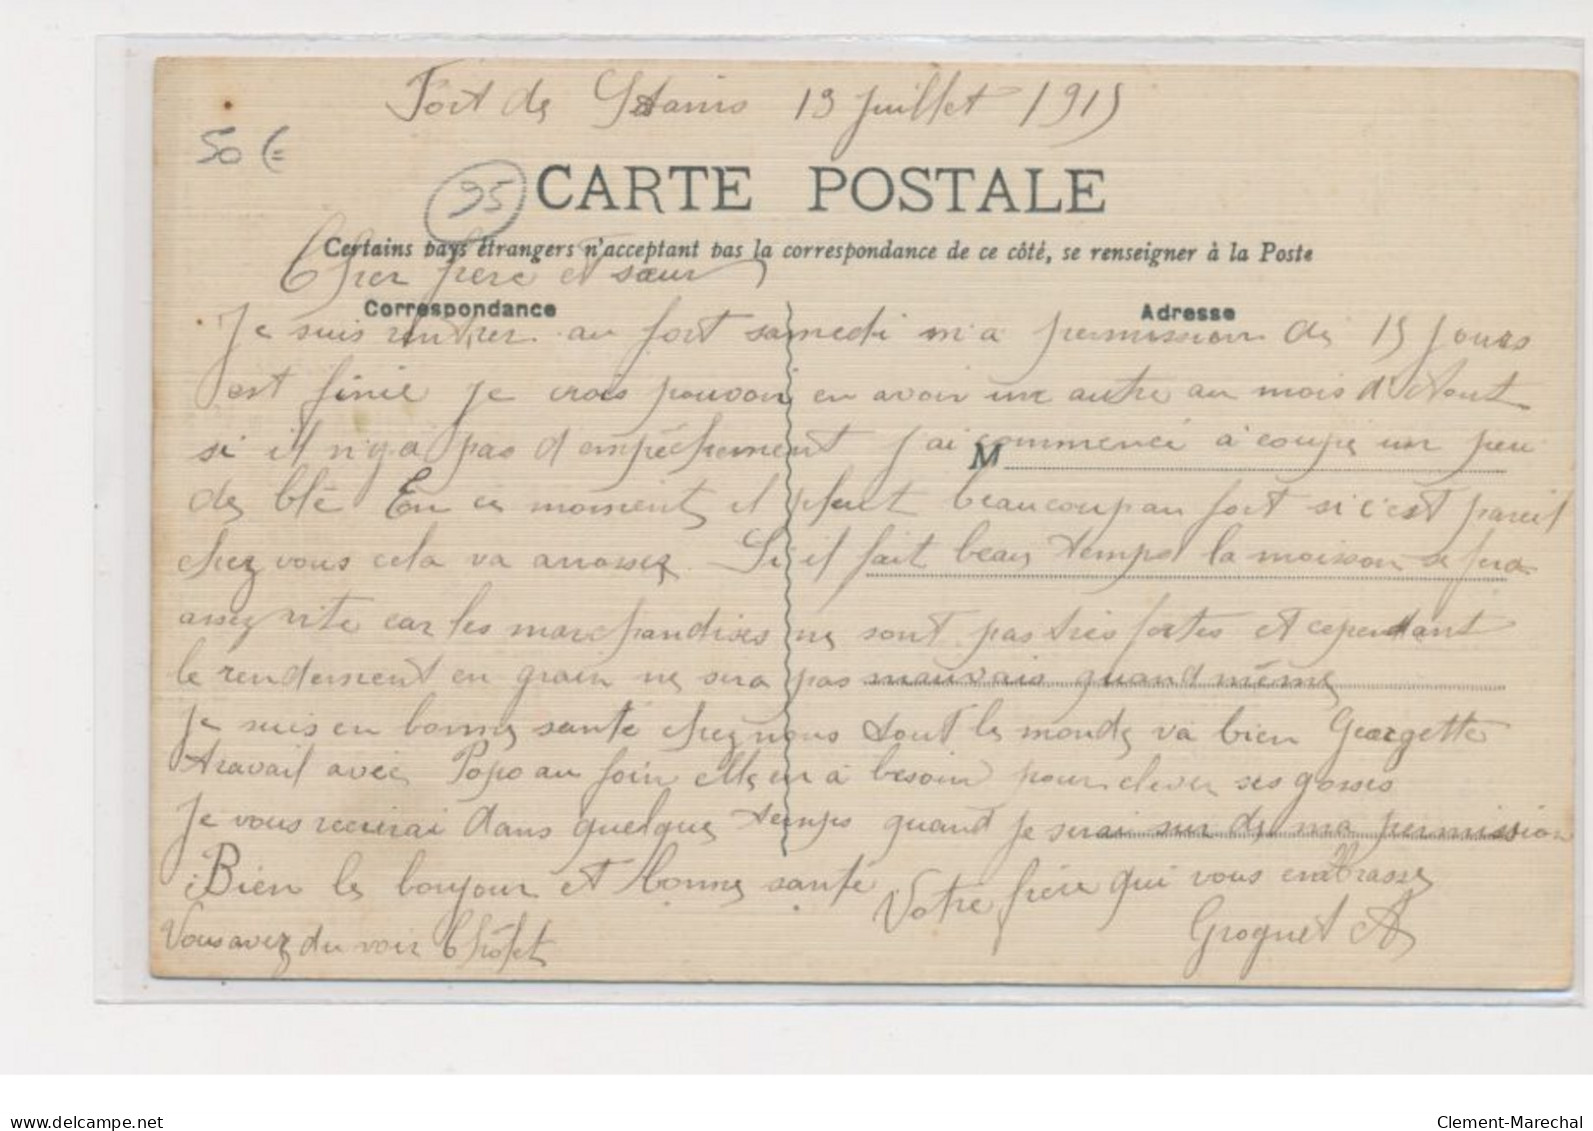 Fort de Stains 19 juillet 1915
50 €
95
CARTE POSTALE
Certains pays étrangers n'acceptent pas la correspondance de ce côté, se renseigner à la Poste
Cher frere et sœur
Correspondance
Adresse
Je suis rentrer au fort samedi m'a permission de 15 jours
est finie je crois pouvoir en avoir une autre au mois d'Aout
si il n'y a pas d'empéchement j'ai commencé à coupé un peu
M
de blé En ce moment il pleut beaucoup au fort si c'est pareil
chez vous cela va arroser. Si il fait beau temps la moisson se fera
assez vite car les marchandises ne sont pas très fortes et cependant
le rendement en grain ne sera pas mauvais quand même
Je suis en bonne santé chez nous tout le monde va bien Georgette
travail avec Popo au foin elle en a besoin pour elever ses gosses
Je vous reverai dans quelque temps quand je serai sur de ma permission
Bien le bonjour et bonne santé
Votre frère qui vous embrasse
Vous avez du voir Chôlet
Grognet A
www.delcampe.net
Clement-Marechal